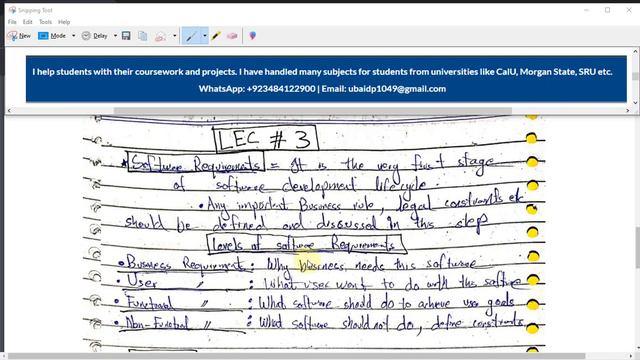 Snipping Tool
File Tools Help
New Mode Delay
I help students with their coursework and projects. I have handled many subjects for students from universities like CalU, Morgan State, SRU etc.
WhatsApp: +923484122900 | Email: ubaidp1049@gmail.com
LEC # 3
* Software Requirements = It is the very first stage
of software development lifecycle.
• Any important Business rule, legal constraints etc
should be defined and discussed in this step
Levels of software Requirements
• Business Requirements : Why business needs this software
• User " : What user want to do with the software
• Functional " : What software should do to achieve user goals
• Non-Functional " : What software should not do, define constraints